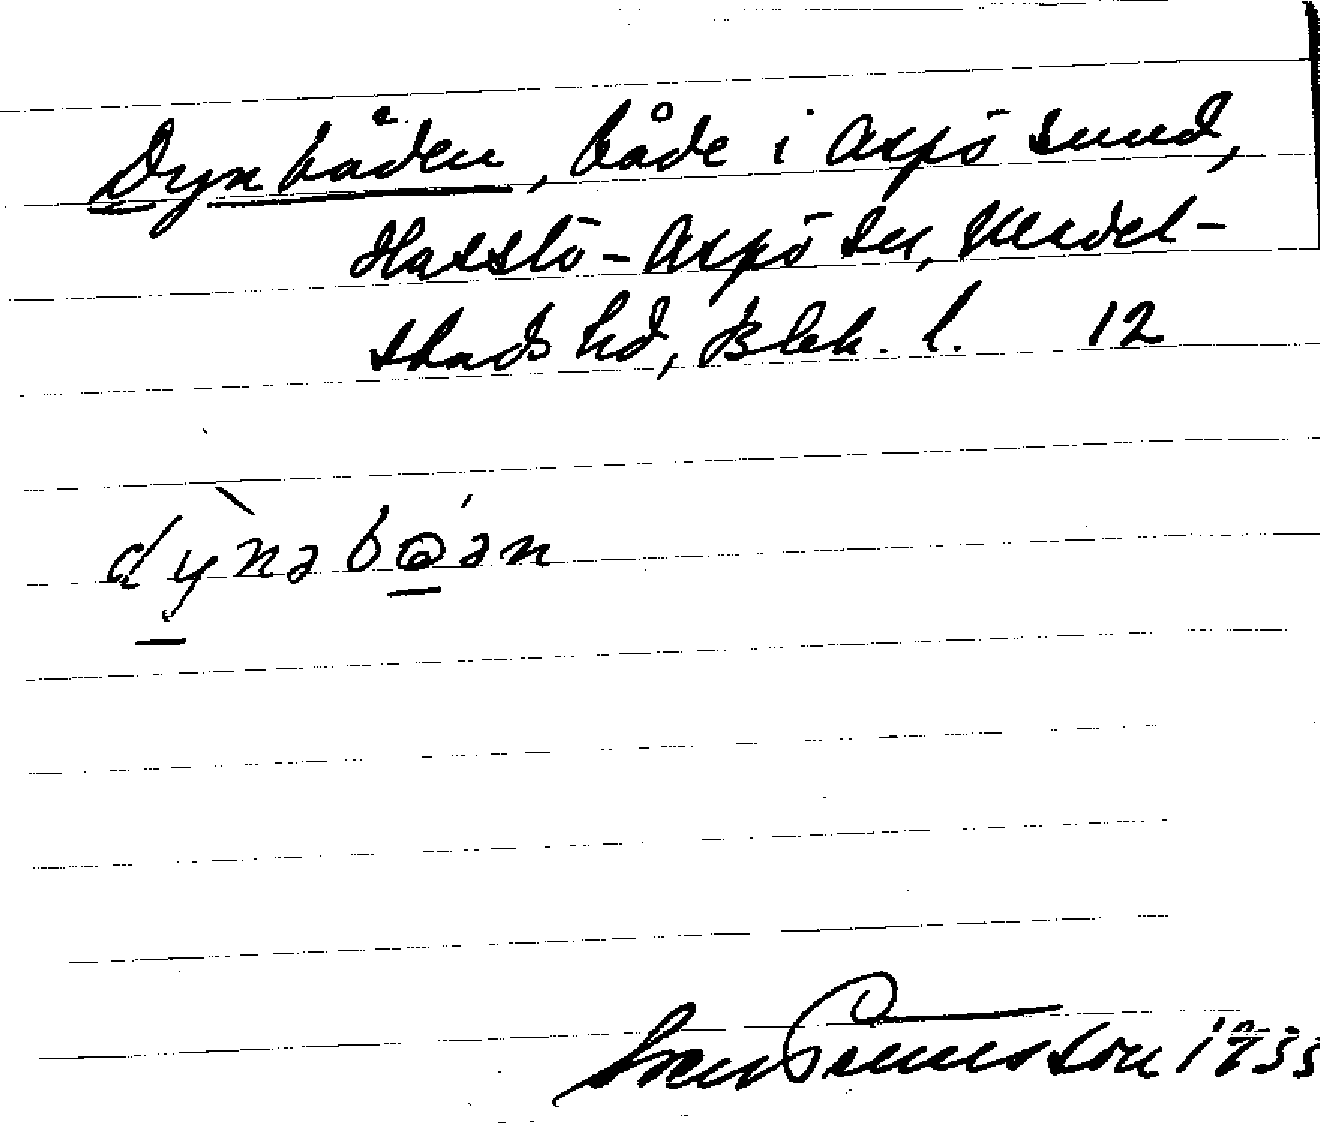 Dynbåden, både i Aspö sund,
Hasslö-Aspö sn, Medel-
stads hd, Blek. l. 12
dỳnəbɷ́ən
Sven Benson 1953